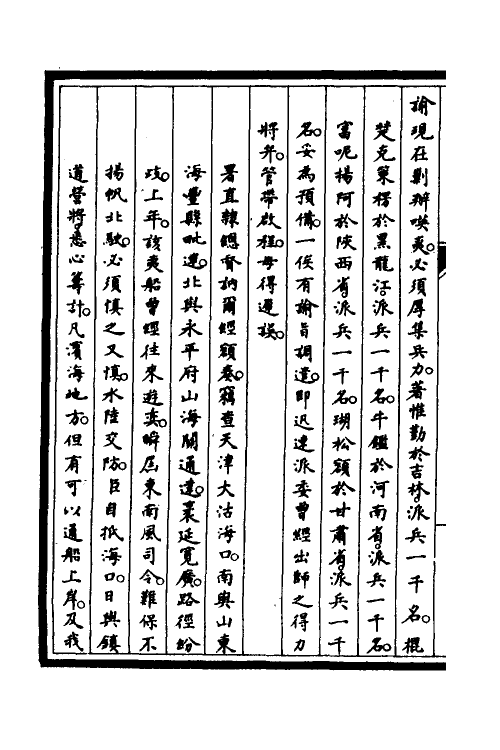 諭現在剿辦㗖夷。必須厚集兵力。著惟勤於吉林。派兵一千名。棍
楚克策楞於黑龍江。派兵一千名。牛鑑於河南省。派兵一千名。
富呢揚阿於陝西省。派兵一千名。瑚松額於甘肅省。派兵一千
名。妥為預備。一俟有諭旨調遣。即迅速派委曾經出師之得力
將弁。管帶啟程。毋得遲誤。
署直隸總督訥爾經額奏。竊查天津大沽海口。南與山東
海豐縣毗連。北與永平府山海關通連。袤延寬廣。路徑紛
歧。上年。該夷船曾經往來遊奕。瞬屆東南風司令。難保不
揚帆北駛。必須慎之又慎。水陸交防。臣自抵海口。日與鎮
道營將。悉心籌計。凡濱海地方。但有可以通船上岸。及我